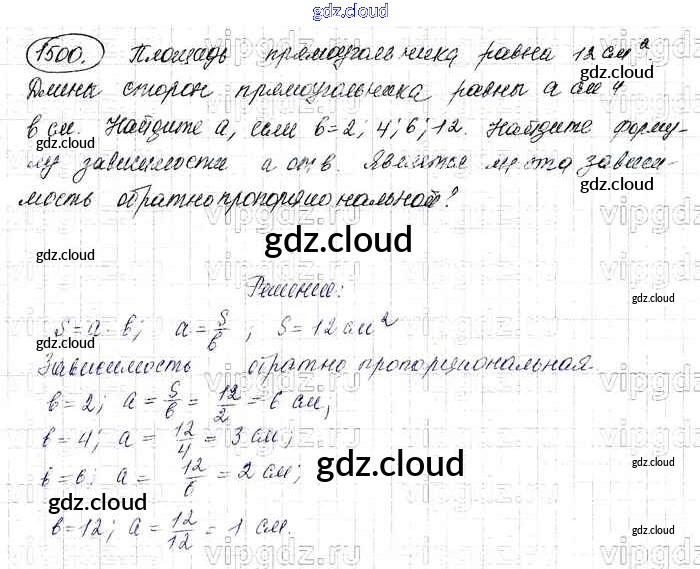 gdz.cloud
1500. Площадь прямоугольника равна 12 см².
gdz.cloud
Длины сторон прямоугольника равны a см и
b см. Найдите a, если b=2; 4; 6; 12. Найдите форму-
gdz.cloud
лу зависимости a от b. Является ли эта зависи-
gdz.cloud
мость обратно пропорциональной?
vipgdz.ru
gdz.cloud
gdz.cloud
Решение:
gdz.cloud
S=a·b; a=S/b; S=12 см²
Зависимость обратно пропорциональная.
vipgdz.ru
b=2; a=S/b=12/2=6 см;
gdz.cloud
b=4; a=12/4=3 см;
gdz.cloud
b=6; a=12/6=2 см;
gdz.cloud
b=12; a=12/12=1 см.
gdz.cloud
vipgdz.ru